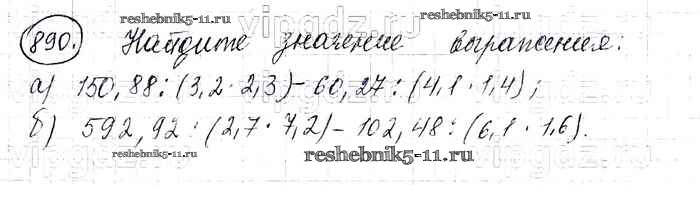 reshebnik5-11.ru
reshebnik5-11.ru
890. Найдите значение выражения:
а) 150,88:(3,2·2,3)-60,27:(4,1·1,4);
б) 592,92:(2,7·7,2)-102,48:(6,1·1,6).
reshebnik5-11.ru
reshebnik5-11.ru